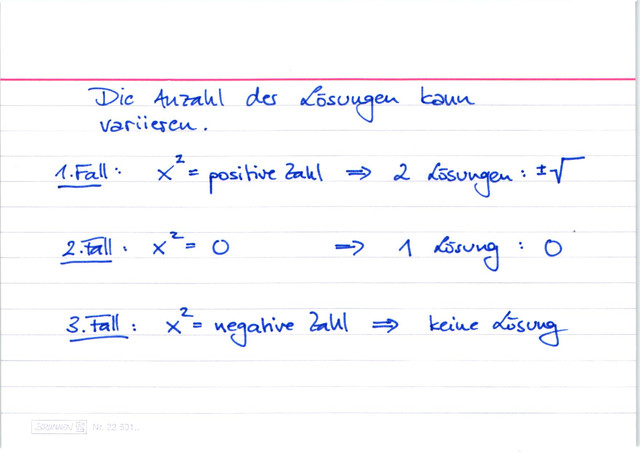 Die Anzahl der Lösungen kann
variieren.
1. Fall: x² = positive Zahl ⇒ 2 Lösungen: ±√
2. Fall: x² = 0 ⇒ 1 Lösung: 0
3. Fall: x² = negative Zahl ⇒ keine Lösung